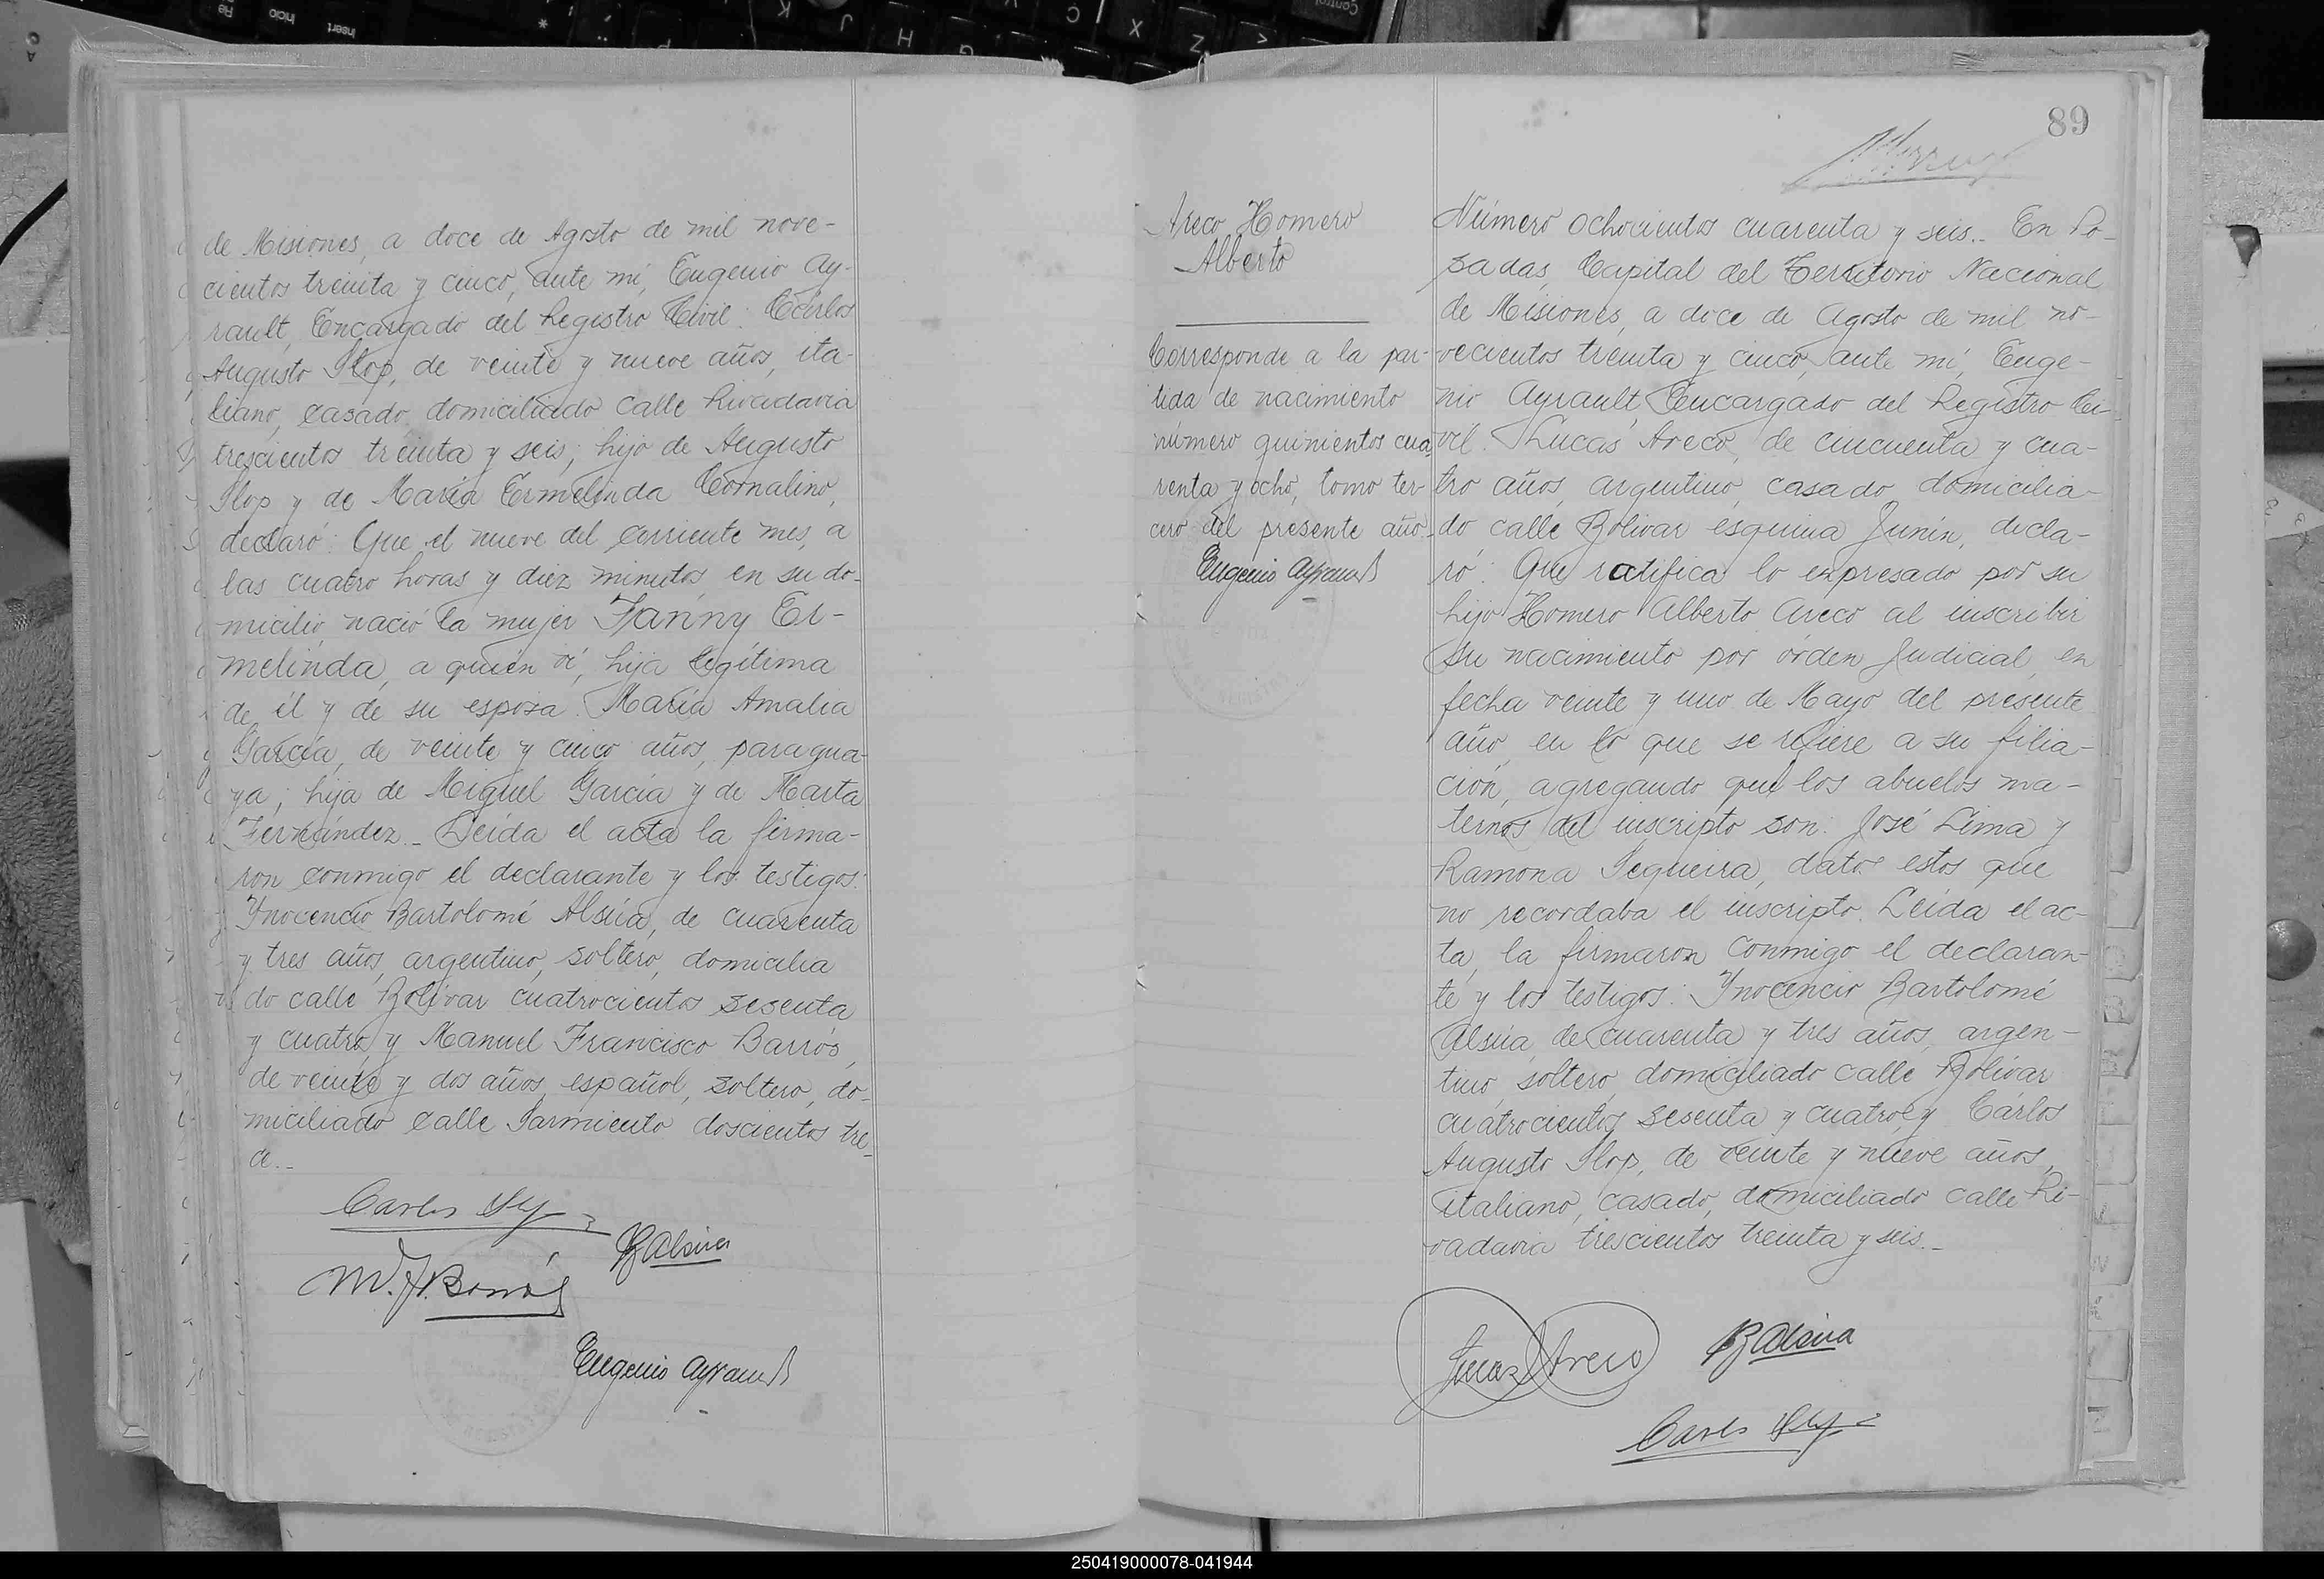 de Misiones, a doce de Agosto de mil nove-
cientos treinta y cinco, ante mí, Eugenio Ay-
rault, Encargado del Registro Civil: Cárlos
Augusto Slop, de veinte y nueve años, ita-
liano, casado, domiciliado calle Rivadavia
trescientos treinta y seis, hijo de Augusto
Slop y de María Ermelinda Cornalino,
declaró: Que el nueve del corriente mes, a
las cuatro horas y diez minutos, en su do-
micilio, nació la mujer Fanny Er-
melinda, a quién ví, hija legítima
de él y de su esposa María Amalia
García, de veinte y cinco años, paragua-
ya; hija de Miguel García y de Marta
Fernández._ Leída el acta la firma-
ron conmigo el declarante y los testigos:
Ynocencio Bartolomé Alsúa, de cuarenta
y tres años, argentino, soltero, domicilia
do calle Bolívar cuatrocientos sesenta
y cuatro, y Manuel Francisco Barrós,
de veinte y dos años, español, soltero, do-
miciliado calle Sarmiento doscientos tre-
ce._
Carlos Slop
YBAlsúa
M. F. Barrós
Eugenio Ayrault
89
Areco Homero
Alberto
Corresponde a la par-
tida de nacimiento
número quinientos cua-
renta y ocho, tomo ter-
cero del presente año._
Eugenio Ayrault
Número ochocientos cuarenta y seis._ En Po-
sadas, Capital del Territorio Nacional
de Misiones, a doce de Agosto de mil no-
vecientos treinta y cinco, ante mí, Euge-
nio Ayrault, Encargado del Registro Ci-
vil: Lucas Areco, de cincuenta y cua-
tro años, argentino, casado, domicilia-
do calle Bolívar esquina Junín, decla-
ró: Que ratifica lo expresado por su
hijo Homero Alberto Areco al inscribir
su nacimiento por órden Judicial, en
fecha veinte y uno de Mayo del presente
año, en lo que se refiere a su filia-
ción, agregando que los abuelos ma-
ternos del inscripto son: José Lima y
Ramona Sequeira, datos estos que
no recordaba el inscripto. Leída el ac-
ta, la firmaron conmigo el declaran-
te y los testigos: Ynocencio Bartolomé
Alsúa, de cuarenta y tres años, argen-
tino, soltero, domiciliado calle Bolívar
cuatrocientos sesenta y cuatro, y Cárlos
Augusto Slop, de veinte y nueve años,
italiano, casado, domiciliado calle Ri-
vadavia trescientos treinta y seis._
Lucas Areco
YBAlsúa
Carlos Slop
250419000078-041944